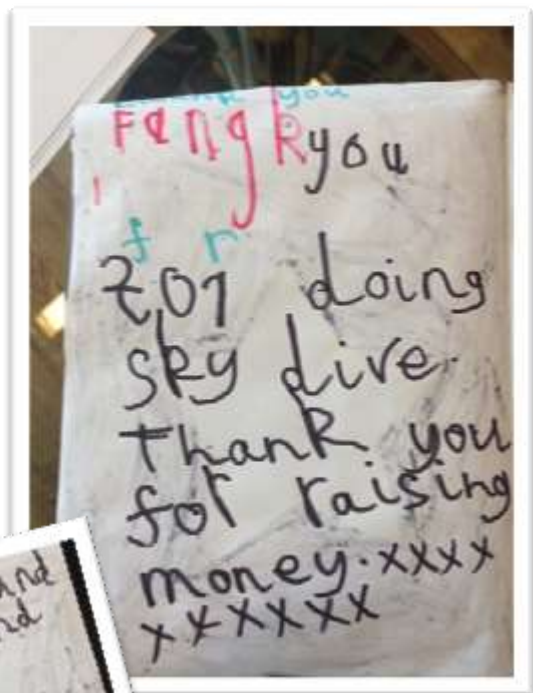 thank you
Fangk you
f r
for doing
sky dive.
thank you
for raising
money.xxxx
xxxxxx